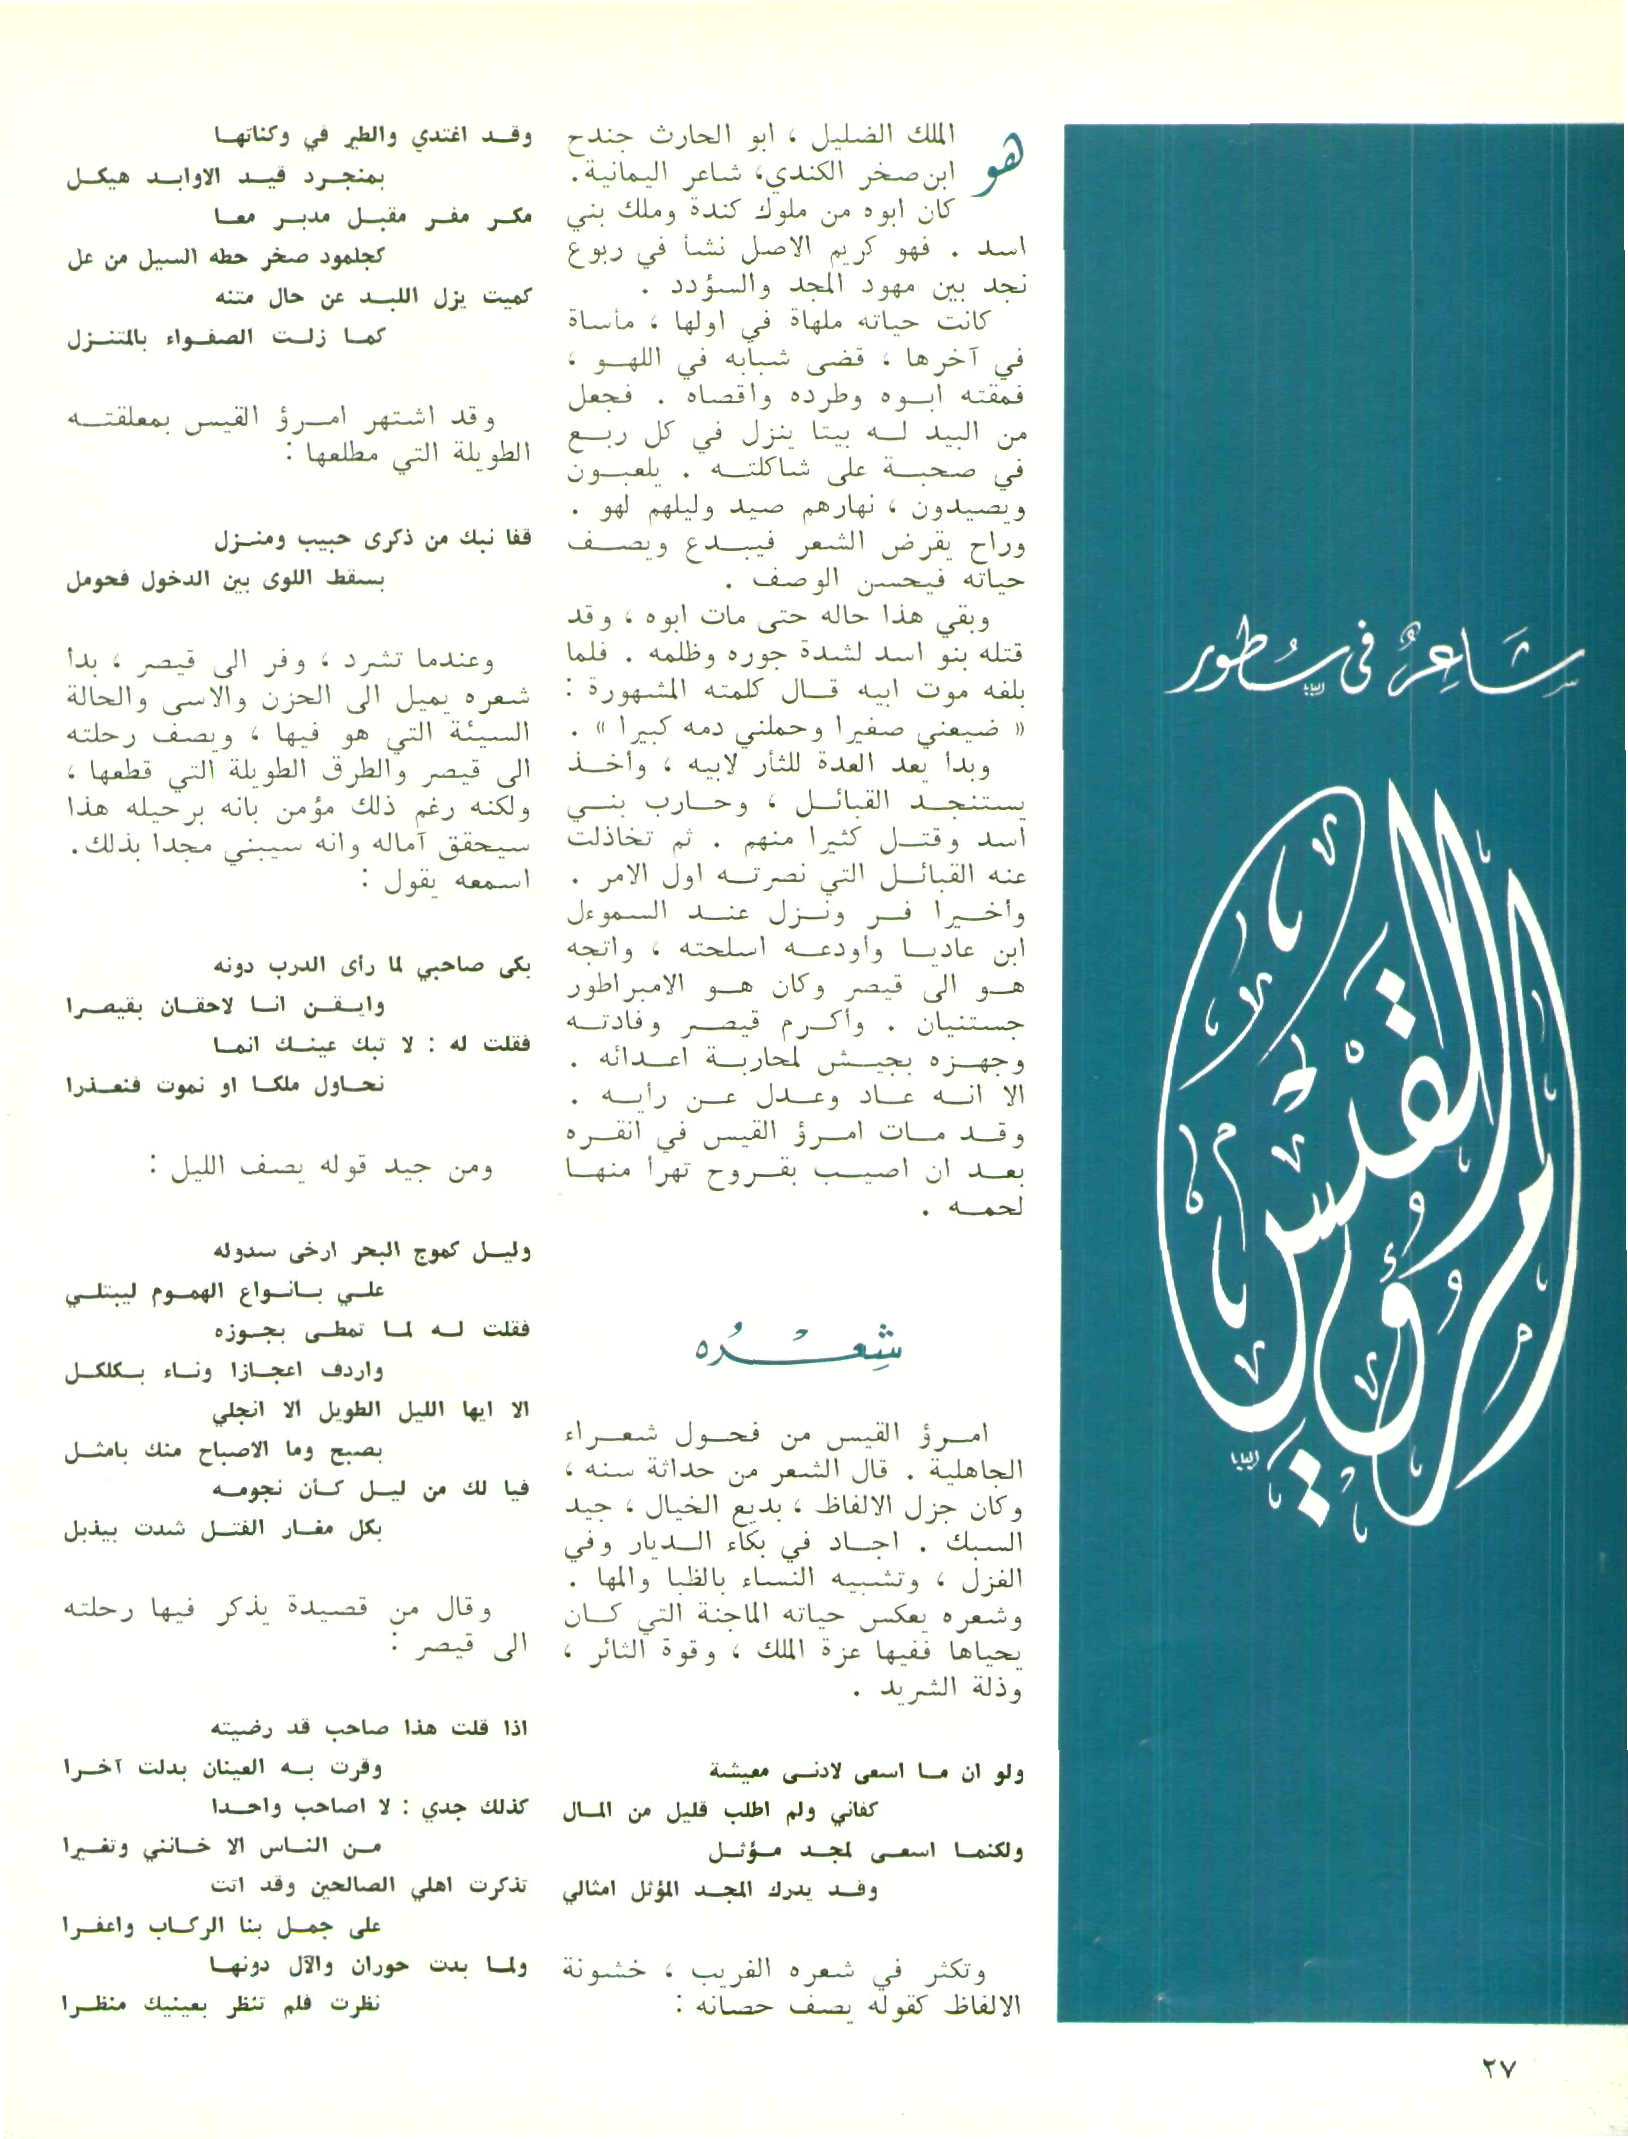 شَاعِرٌ في سُطور
البابا
امرؤ القيس
البابا
هو الملك الضليل ، ابو الحارث جندح
ابن صخر الكندي، شاعر اليمانية.
كان ابوه من ملوك كندة وملك بني
اسد . فهو كريم الاصل نشأ في ربوع
نجد بين مهود المجد والسؤدد .
كانت حياته ملهاة في اولها ، مأساة
في آخرها ، قضى شبابه في اللهو ،
فمقته ابوه وطرده واقصاه . فجعل
من البيد له بيتا ينزل في كل ربع
في صحبة على شاكلته . يلعبون
ويصيدون ، نهارهم صيد وليلهم لهو .
وراح يقرض الشعر فيبدع ويصف
حياته فيحسن الوصف .
وبقي هذا حاله حتى مات ابوه ، وقد
قتله بنو اسد لشدة جوره وظلمه . فلما
بلغه موت ابيه قال كلمته المشهورة :
« ضيعني صغيرا وحملني دمه كبيرا » .
وبدأ يعد العدة للثأر لابيه ، وأخذ
يستنجد القبائل ، وحارب بني
اسد وقتل كثيرا منهم . ثم تخاذلت
عنه القبائل التي نصرته اول الامر .
وأخيرا فر ونزل عند السموءل
ابن عاديا وأودعه اسلحته ، واتجه
هو الى قيصر وكان هو الامبراطور
جستنيان . وأكرم قيصر وفادته
وجهزه بجيش لمحاربة اعدائه .
الا انه عاد وعدل عن رأيه .
وقد مات امرؤ القيس في انقره
بعد ان اصيب بقروح تهرأ منها
لحمه .
شِعْرُه
امرؤ القيس من فحول شعراء
الجاهلية . قال الشعر من حداثة سنه ،
وكان جزل الالفاظ ، بديع الخيال ، جيد
السبك . اجاد في بكاء الديار وفي
الغزل ، وتشبيه النساء بالظبا والمها .
وشعره يعكس حياته الماجنة التي كان
يحياها ففيها عزة الملك ، وقوة الثائر ،
وذلة الشريد .
ولو ان ما اسعى لادنى معيشة
كفاني ولم اطلب قليل من المال
ولكنما اسعى لمجد مؤثل
وقد يدرك المجد المؤثل امثالي
وتكثر في شعره الغريب ، خشونة
الالفاظ كقوله يصف حصانه :
وقد اغتدي والطير في وكناتها
بمنجرد قيد الاوابد هيكل
مكر مفر مقبل مدبر معا
كجلمود صخر حطه السيل من عل
كميت يزل اللبد عن حال متنه
كما زلت الصفواء بالمتنزل
وقد اشتهر امرؤ القيس بمعلقته
الطويلة التي مطلعها :
قفا نبك من ذكرى حبيب ومنزل
بسقط اللوى بين الدخول فحومل
وعندما تشرد ، وفر الى قيصر ، بدأ
شعره يميل الى الحزن والاسى والحالة
السيئة التي هو فيها ، ويصف رحلته
الى قيصر والطرق الطويلة التي قطعها ،
ولكنه رغم ذلك مؤمن بانه برحيله هذا
سيحقق آماله وانه سيبني مجدا بذلك.
اسمعه يقول :
بكى صاحبي لما رأى الدرب دونه
وايقن انا لاحقان بقيصرا
فقلت له : لا تبك عينك انما
نحاول ملكا او نموت فنعذرا
ومن جيد قوله يصف الليل :
وليل كموج البحر ارخى سدوله
علي بانواع الهموم ليبتلي
فقلت له لما تمطى بجوزه
واردف اعجازا وناء بكلكل
الا ايها الليل الطويل الا انجلي
بصبح وما الاصباح منك بامثل
فيا لك من ليل كأن نجومه
بكل مغار الفتل شدت بيذبل
وقال من قصيدة يذكر فيها رحلته
الى قيصر :
اذا قلت هذا صاحب قد رضيته
وقرت به العينان بدلت آخرا
كذلك جدي : لا اصاحب واحدا
من الناس الا خانني وتغيرا
تذكرت اهلي الصالحين وقد اتت
على جمل بنا الركاب واعفرا
ولما بدت حوران والآل دونها
نظرت فلم تنظر بعينيك منظرا
٢٧